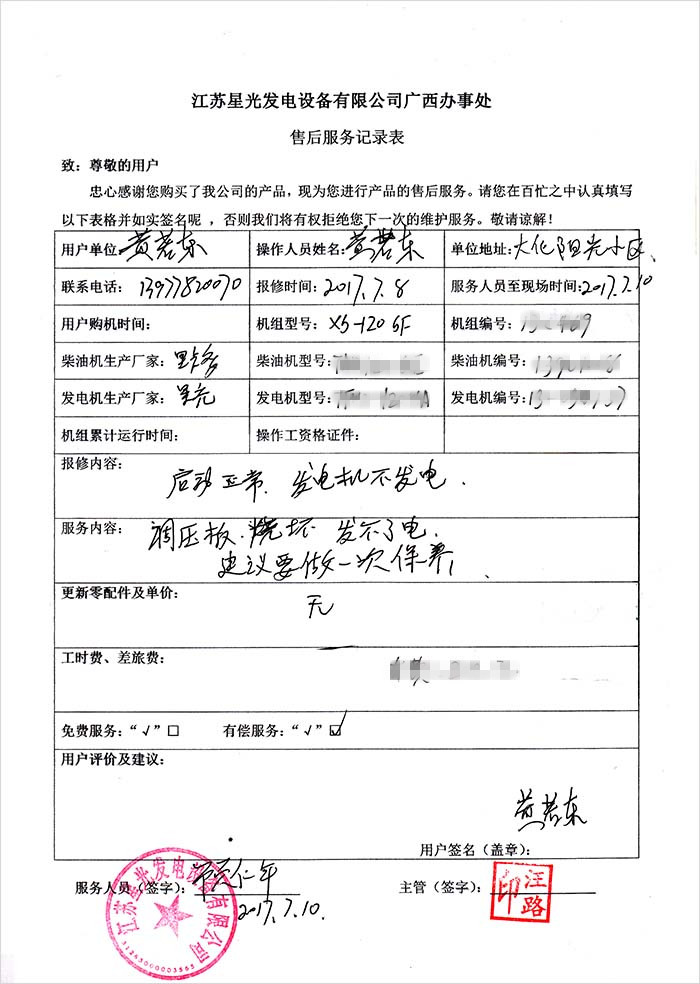 江苏星光发电设备有限公司广西办事处
售后服务记录表
致：尊敬的用户
忠心感谢您购买了我公司的产品，现为您进行产品的售后服务。请您在百忙之中认真填写
以下表格并如实签名呢 ，否则我们将有权拒绝您下一次的维护服务。敬请谅解！
用户单位 黄若东 操作人员姓名：黄若东 单位地址：大化阳光小区、
联系电话：13977820070 报修时间：2017.7.8 服务人员至现场时间：2017.7.10
用户购机时间： 机组型号：XS-120GF 机组编号：
柴油机生产厂家： 柴油机型号： 柴油机编号：
发电机生产厂家：星光 发电机型号： 发电机编号：
机组累计运行时间： 操作工资格证件：
报修内容：
启动正常，发电机不发电．
服务内容：调压板．烧坏 发不了电．
建议要做一次保养，
更新零配件及单价：
无
工时费、差旅费：
免费服务：“√”□ 有偿服务：“√”☑
用户评价及建议：
黄若东
用户签名（盖章）：
服务人员（签字）： 仁年 主管（签字）：
2017.7.10
江苏星光发电设备有限公司
汪路印